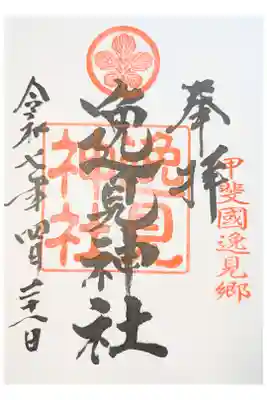 甲斐國逸見郷
奉拝
逸見神社
逸見
神社
令和七年四月二十日